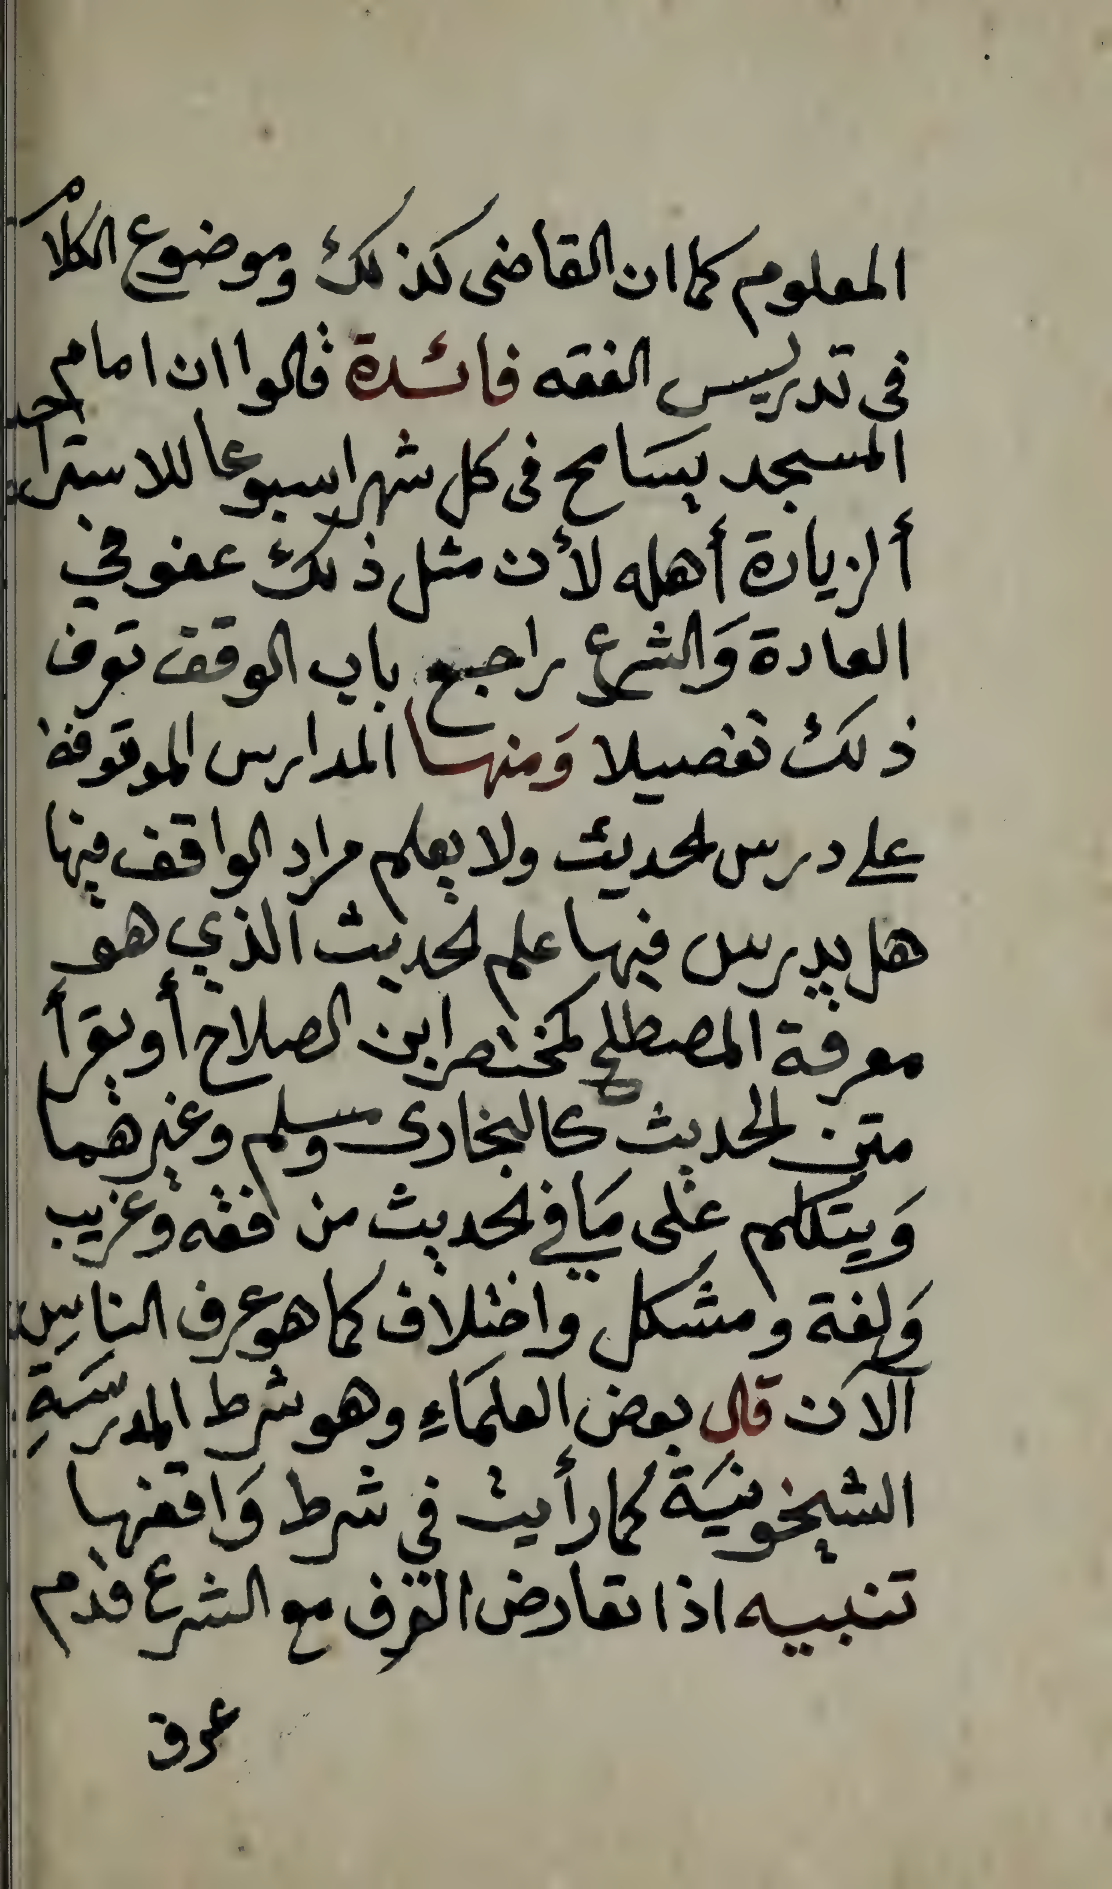 المعلوم كما ان القاضى كذلك وموضوع الكلام
فى تدريس الفقه فائدة قالوا ان امام
المسجد يسامح فى كل شهر اسبوعا للاستراحة
أو لزيارة أهله لأن مثل ذلك عفو في
العادة وَالشرع راجع باب الوقف توف
ذلك تفصيلا وَمنها المدارس الموقوفة
على درس الحديث ولا يعلم مراد الواقف فيها
هل يدرس فيها علم الحديث الذي هو
معرفة المصطلح كمختصر ابن الصلاح أو يقرأ
متن الحديث كالبخارى ومسلم وغيرهما
وَيتكلم على مَا في الحديث من فقه وغريب
وَلغة ومشكل واختلاف كما هو عرف الناس
الآن قال بعض العلمَاءِ وهو شرط المدرسَةِ
الشيخونيَة كما رأيت في شرط وَاقفها
تنبيه اذا تعارض العرف مع الشرع قدم
عرف